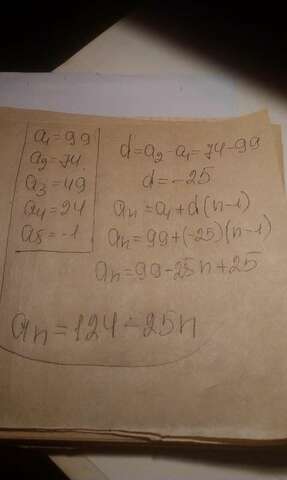 a₁=99
a₂=74
a₃=49
a₄=24
a₅=-1
d=a₂-a₁=74-99
d=-25
aₙ=a₁+d(n-1)
aₙ=99+(-25)(n-1)
aₙ=99-25n+25
aₙ=124-25n